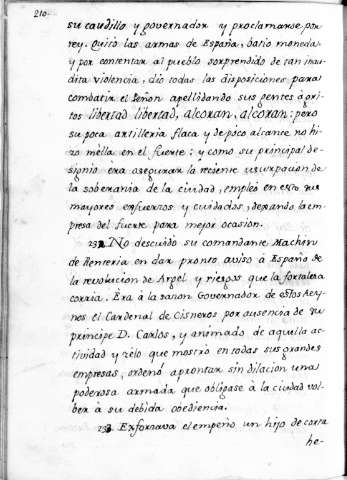 210
su caudillo y governador y proclamarse por
rey. Quitó las armas de España, batio moneda
y por contentar al pueblo sorprendido de tan inau
dita violencia, dio todas las disposiciones para
combatir el Peñon apellidando sus gentes á gri-
tos libertad libertad, alcoran, alcoran: pero
su poca artilleria flaca y de póco alcante no hi-
zo mella en el fuerte: y como su principal de-
signio era asegurar la reciente usurpacion de
la soberania de la ciudad, empleó en esto sus
mayores esfuerzos y cuidados, dexando la em-
presa del fuerte para mejor ocasion.
No descuidó su comandante Machin
de Renteria en dar pronto aviso à España de
la revolucion de Argel y riesgos que la fortaleza
corria. Era à la sazon Governador de estos Rey-
nos el Cardenal de Cisneros por ausencia de su
principe D. Carlos, y animado de aquella ac-
tividad y zelo que mostró en todas sus grandes
empresas, ordenó aprontar sin dilacion una
poderosa armada que obligase à la ciudad vol-
ber à su debida obediencia.
Esforzava el empeño un hijo de corta
he-